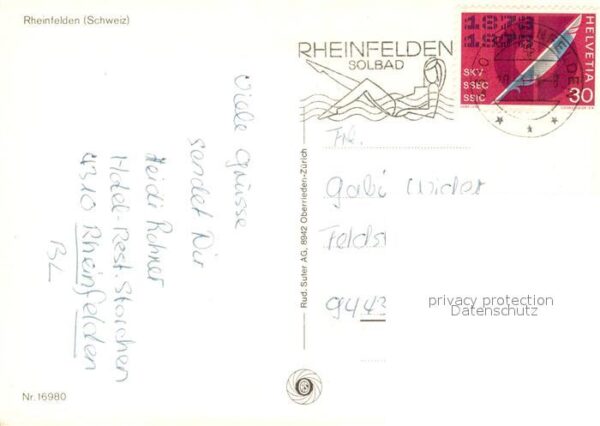 Rheinfelden (Schweiz)
Viele Grüsse
sendet Dir
Heidi Rohner
Hotel-Rest. Storchen
4310 Rheinfelden
Nr. 16980
Rud. Suter AG, 8942 Oberrieden-Zürich
RHEINFELDEN
SOLBAD
1873
SKV
SSEC
SSIC
HELVETIA
30
Frl.
Gabi
Feldst
9443
privacy protection
Datenschutz